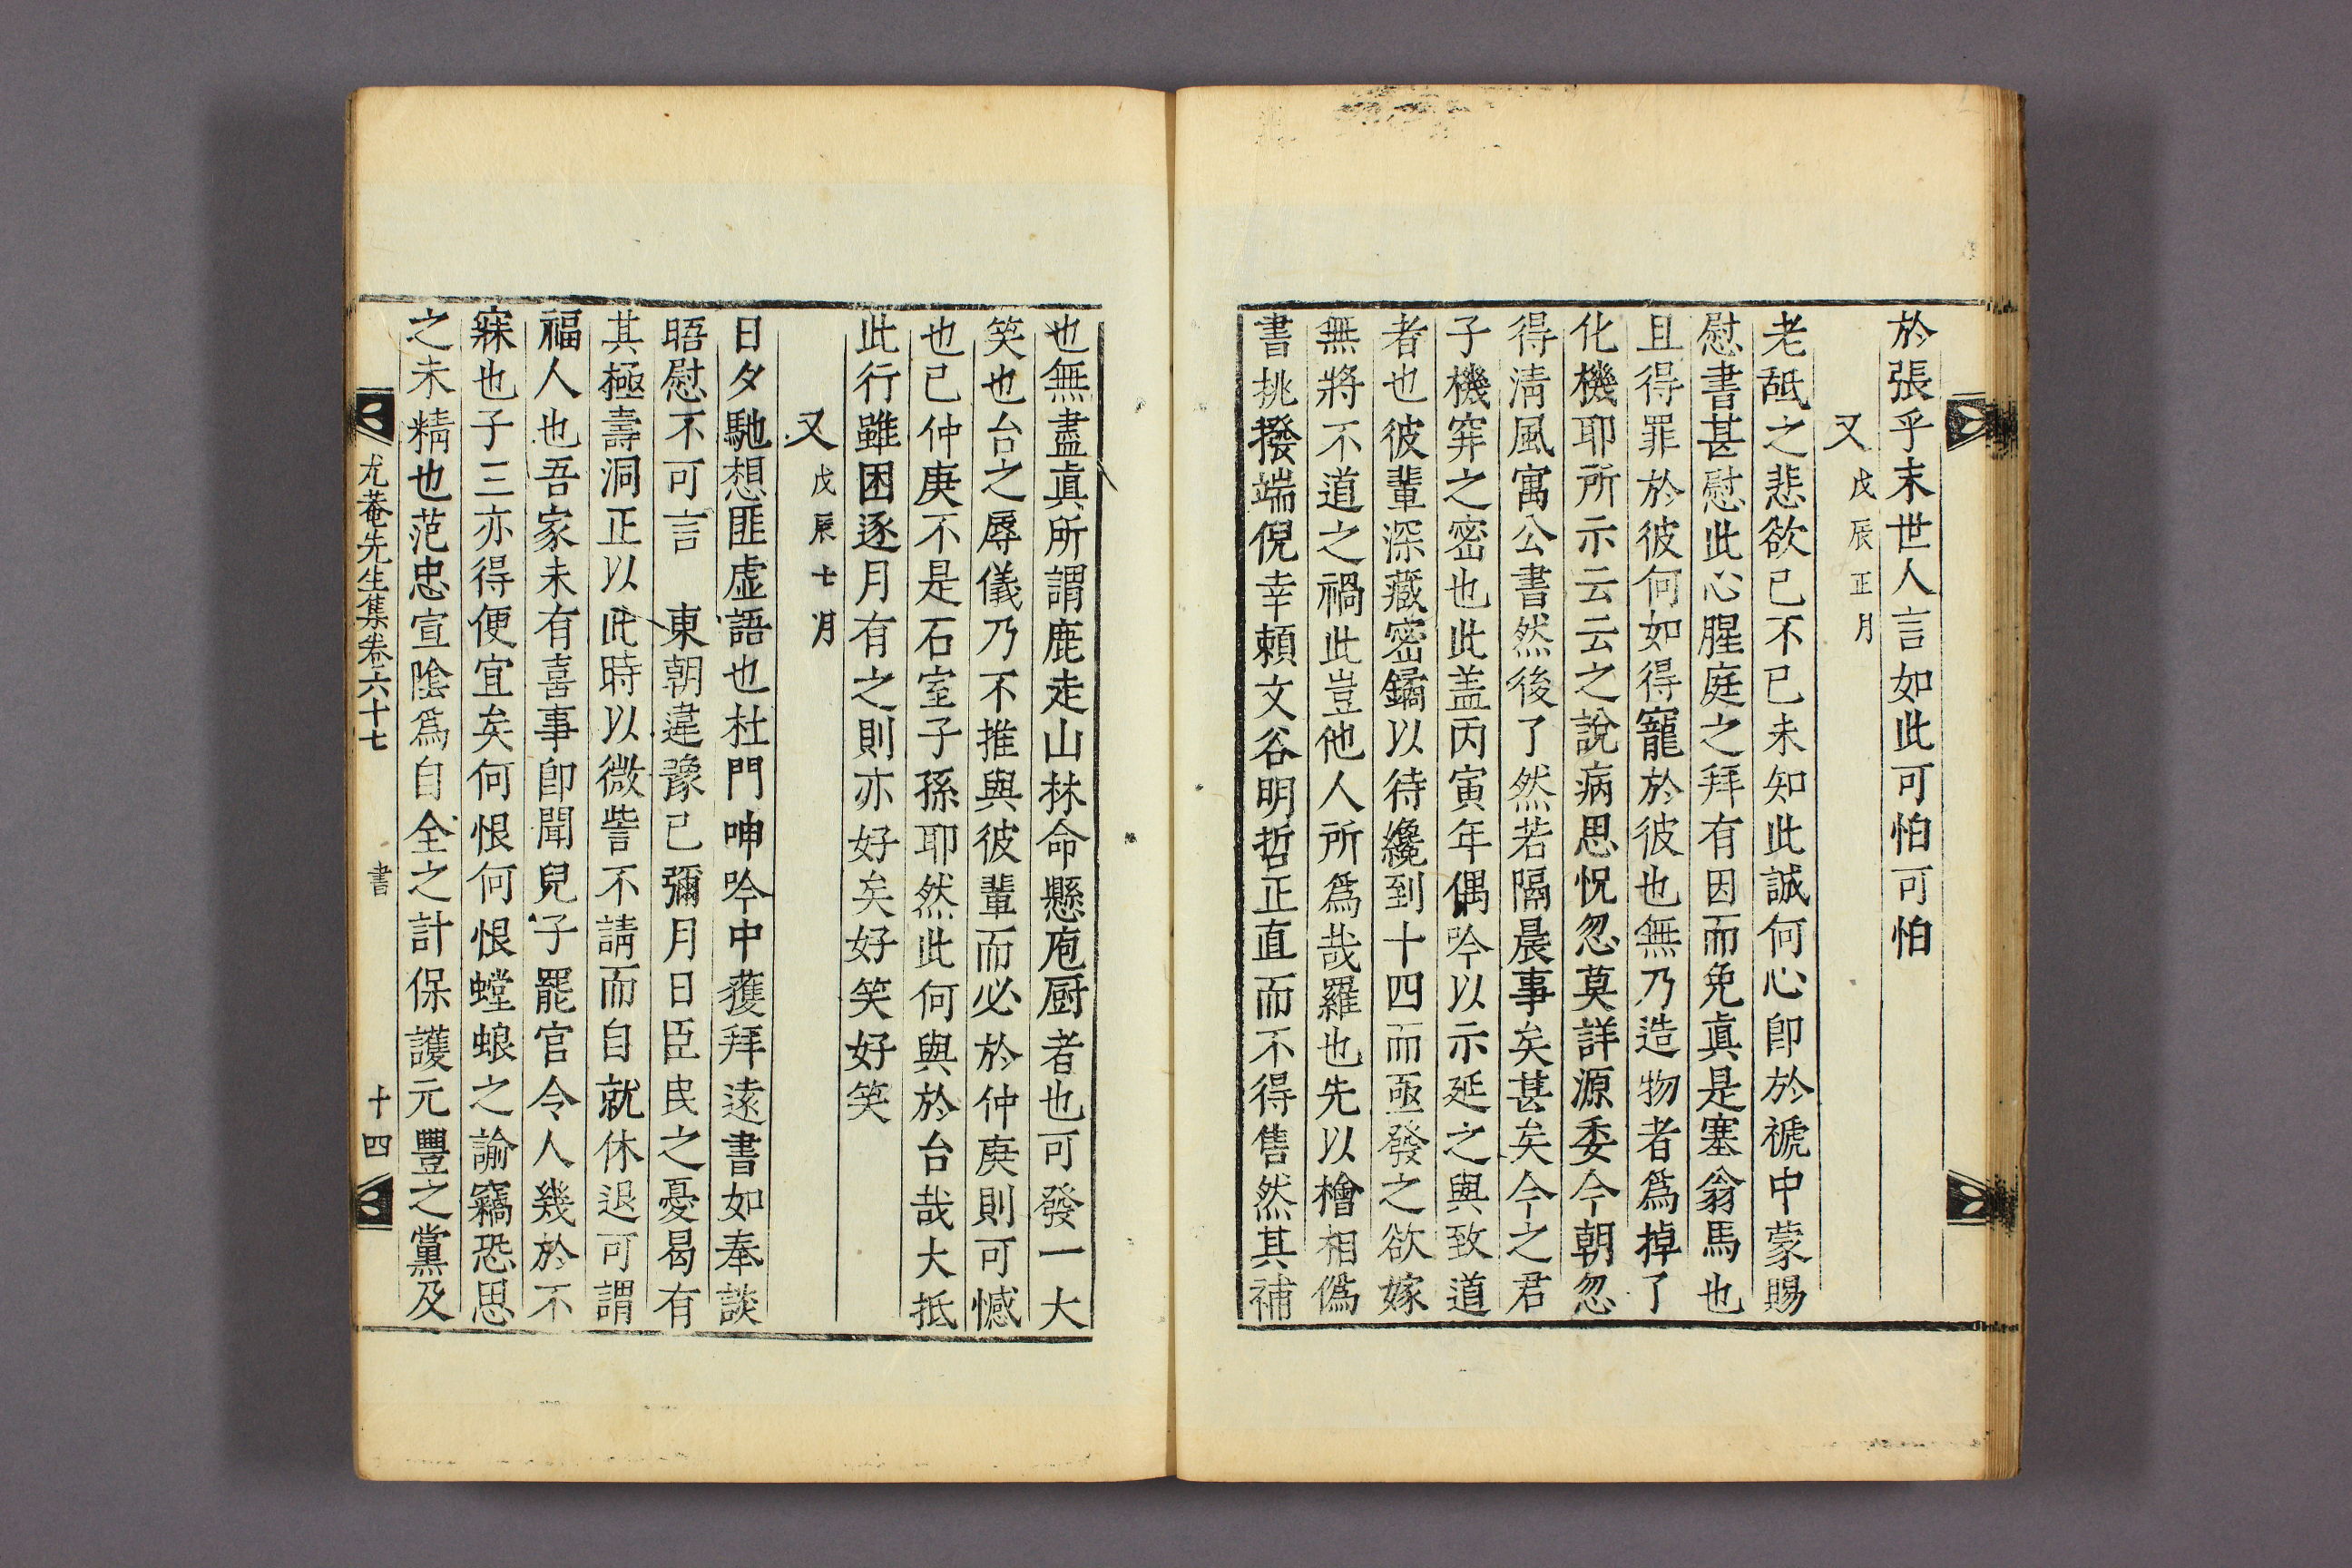 於張乎末世人言如此可怕可怕
又戊辰正月
老舐之悲欲已不已未知此誠何心卽於褫中蒙賜
慰書甚慰此心腥庭之拜有因而免眞是塞翁馬也
且得罪於彼何如得寵於彼也無乃造物者爲掉了
化機耶所示云云之說病思怳忽莫詳源委今朝忽
得淸風寓公書然後了然若隔晨事矣甚矣今之君
子機穽之密也此盖丙寅年偶吟以示延之與致道
者也彼輩深藏密鐍以待纔到十四而亟發之欲嫁
無將不道之禍此豈他人所爲哉羅也先以檜相僞
書挑撥端倪幸賴文谷明哲正直而不得售然其補
也無盡眞所謂鹿走山林命懸庖厨者也可發一大
笑也台之辱儀乃不推與彼輩而必於仲庚則可憾
也已仲庚不是石室子孫耶然此何與於台哉大抵
此行雖困逐月有之則亦好矣好笑好笑
又戊辰七月
日夕馳想匪虛語也杜門呻吟中獲拜遠書如奉談
晤慰不可言　東朝違豫已彌月日臣民之憂曷有
其極壽洞正以此時以微訾不請而自就休退可謂
福人也吾家未有喜事卽聞兒子罷官令人幾於不
寐也子三亦得便宜矣何恨何恨螳蜋之諭竊恐思
之未精也范忠宣陰爲自全之計保護元豐之黨及
尤菴先生集卷六十七　書　十四